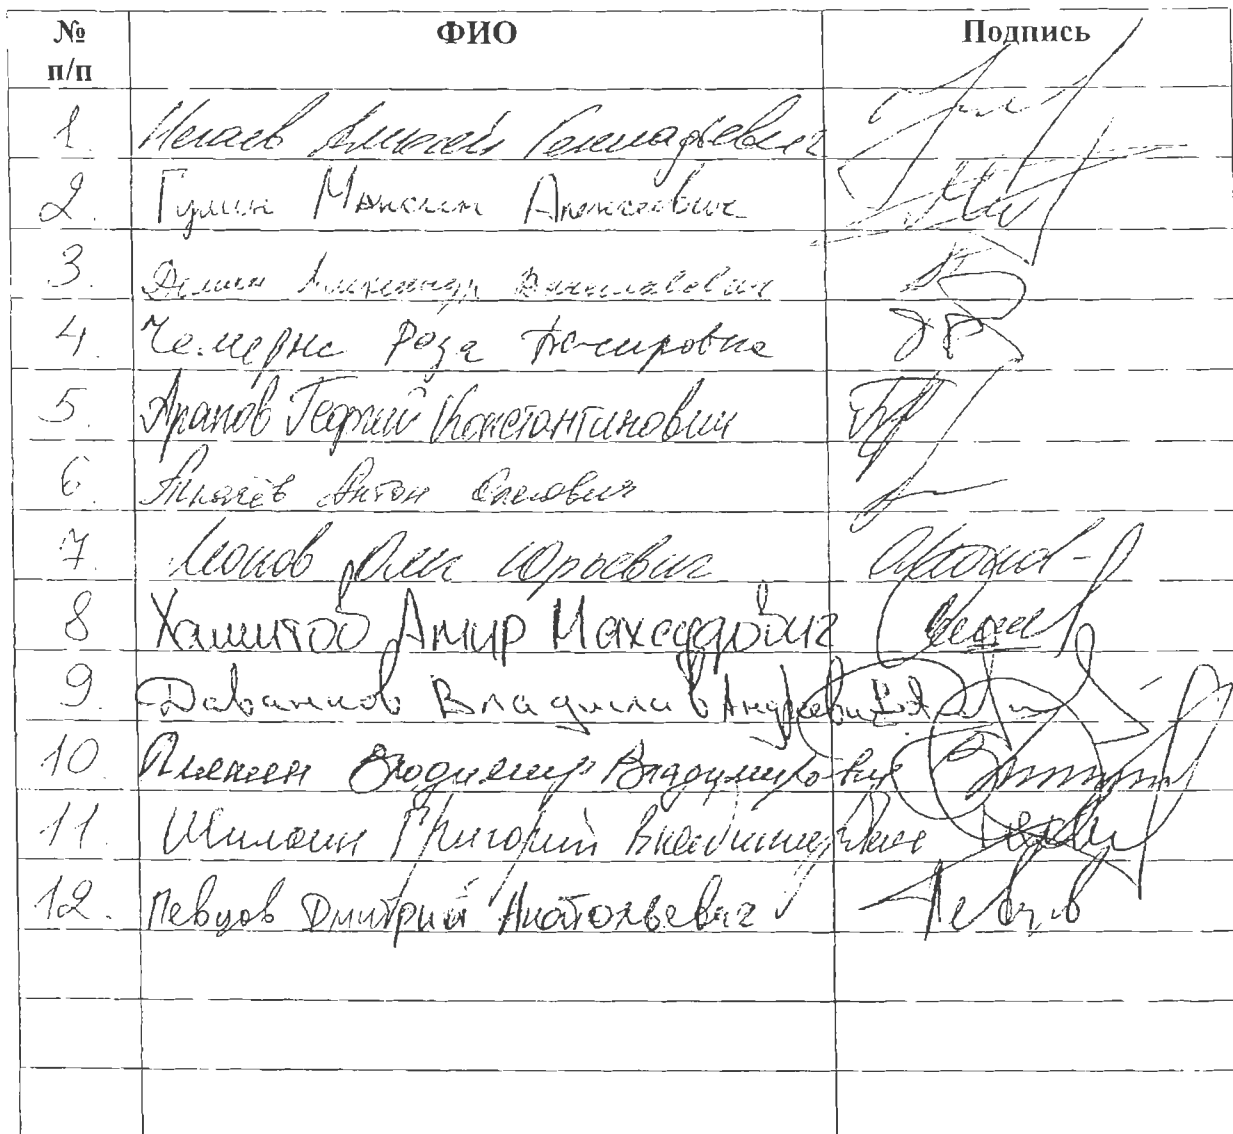 № п/п ФИО Подпись
1. Нечаев Алексей Геннадьевич
2. Гулин Максим Алексеевич
3. Демин Александр Вячеславович
4. Чемерис Роза Басировна
5. Арапов Георгий Константинович
6. Ткачёв Антон Олегович
7. Леонов Олег Юрьевич
8 Хамитов Амир Махсудович
9. Даванков Владислав Андреевич
10. Плякин Владимир Владимирович
11. Шилкин Григорий Владимирович
12. Певцов Дмитрий Анатольевич Певцов